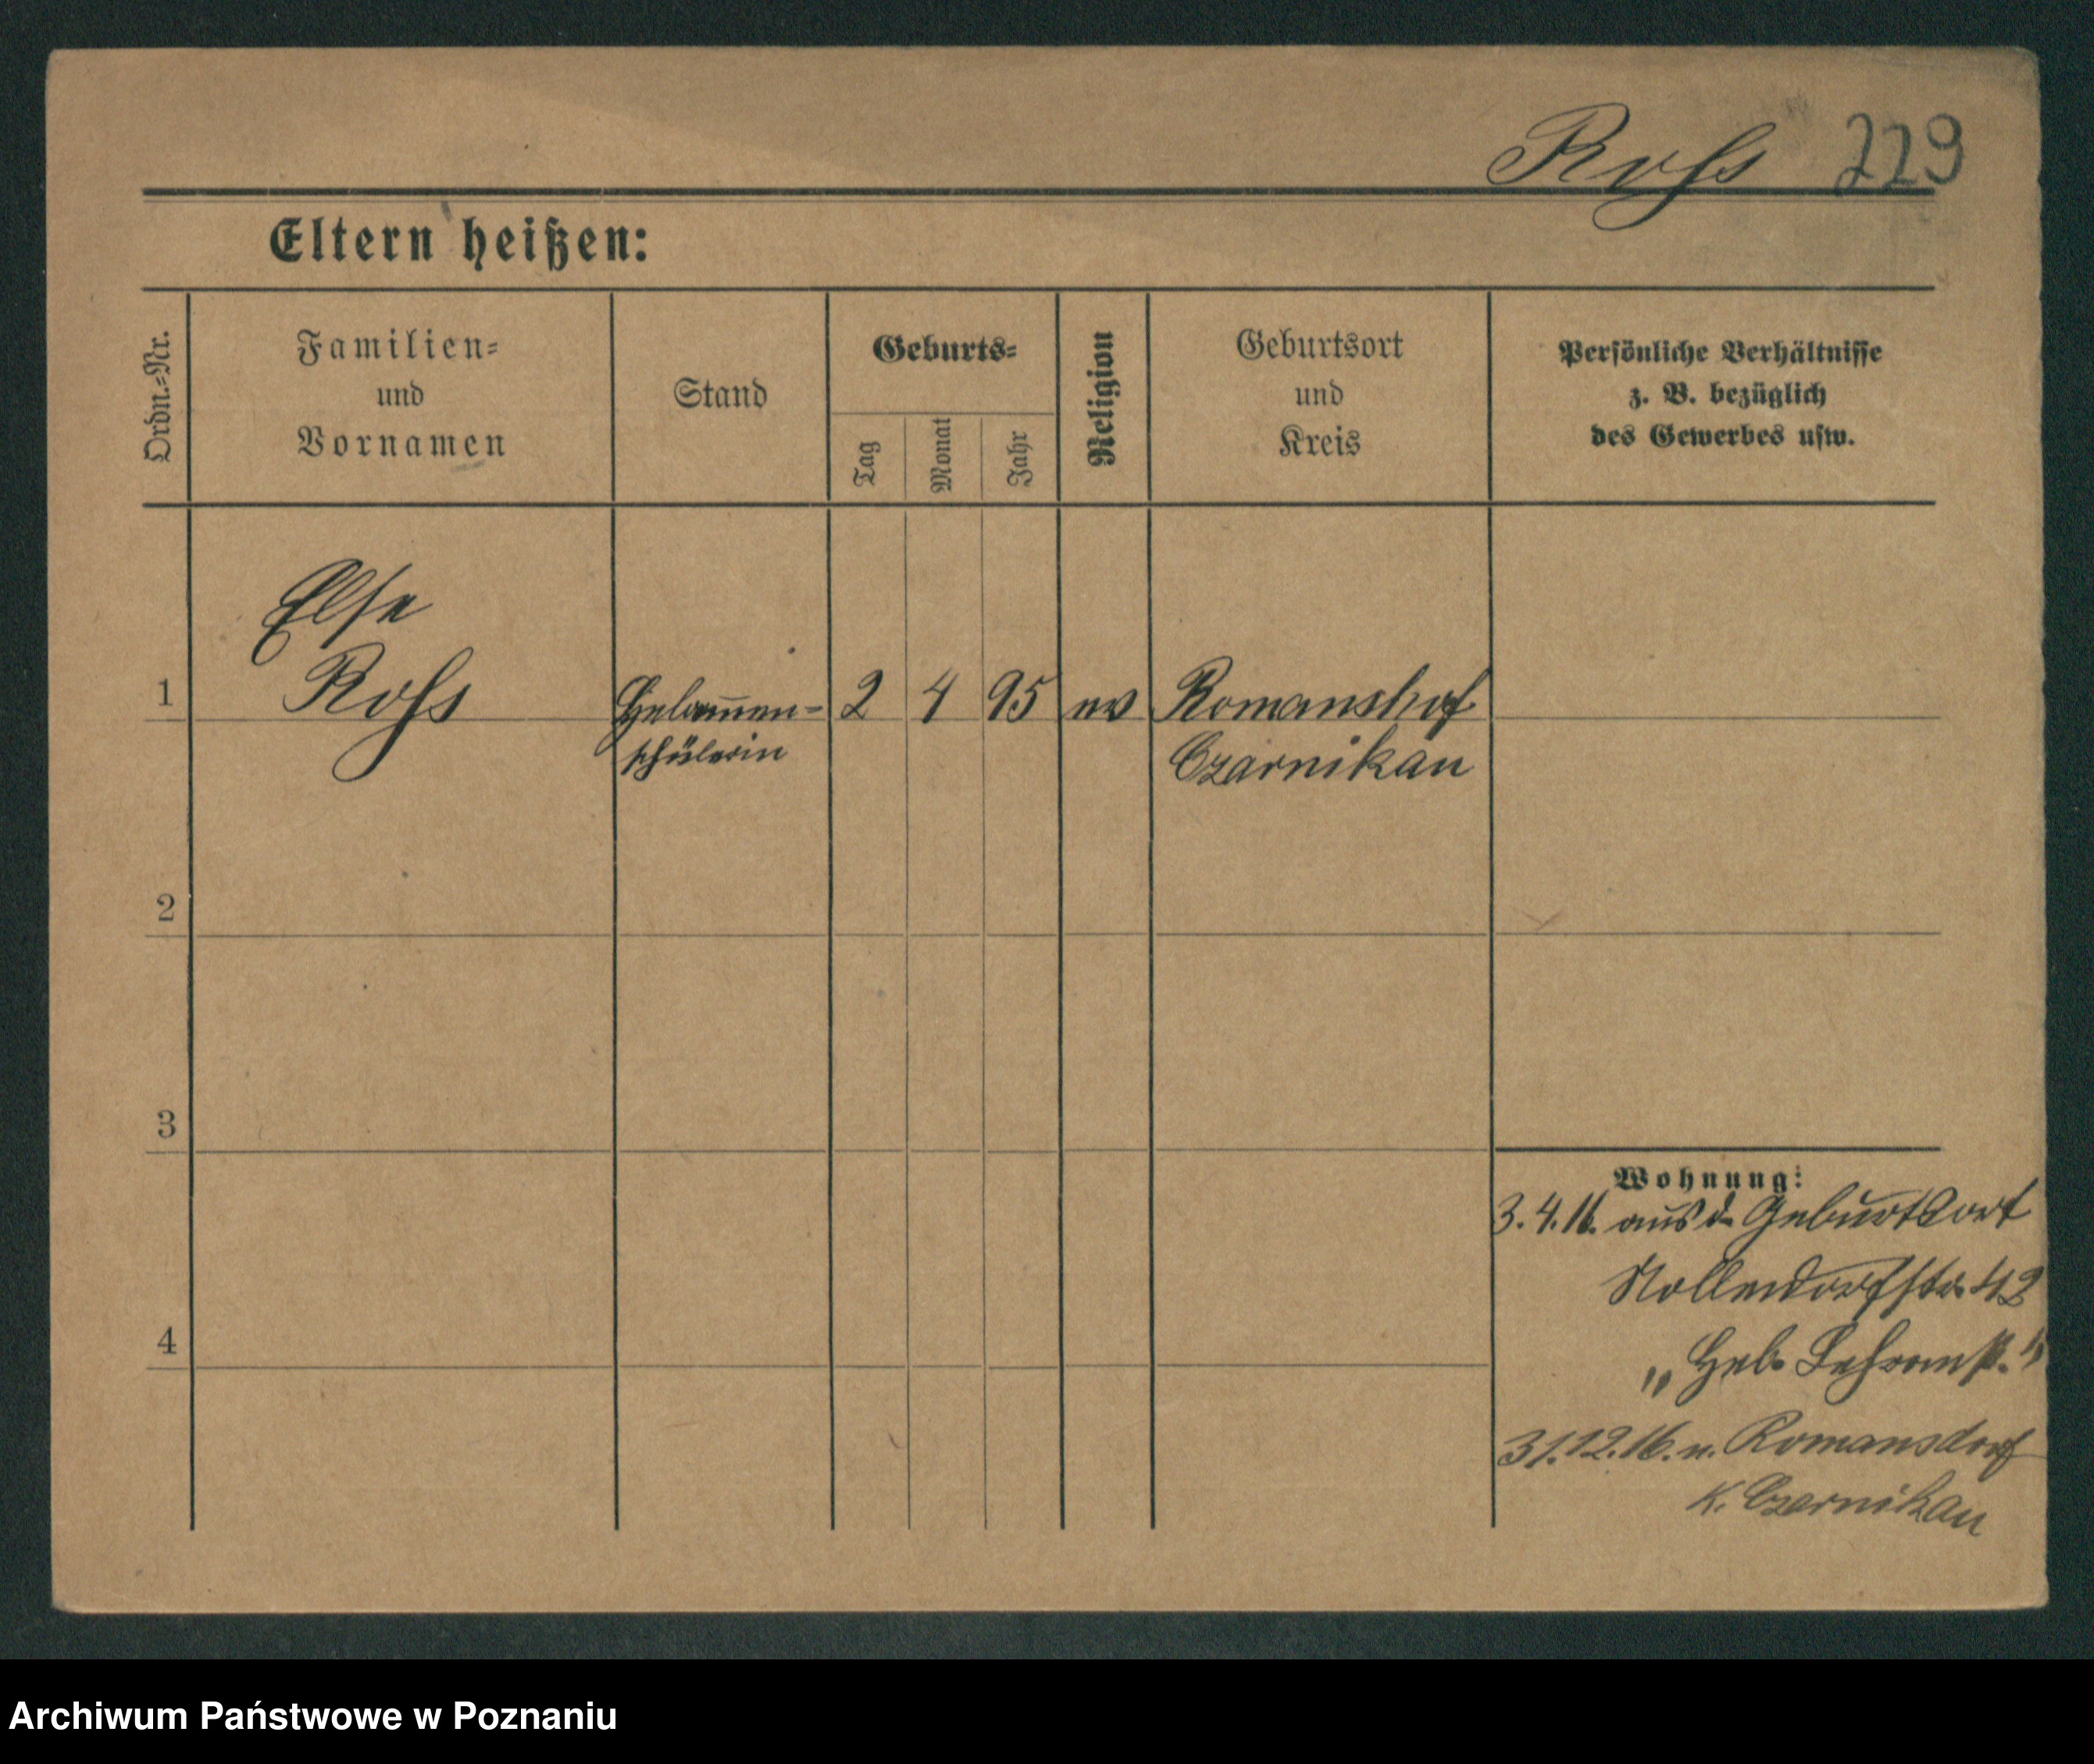 Roß 229
Eltern heißen:
Ordn.=Nr.
Familien=
und
Vornamen
Stand
Geburts=
Tag
Monat
Jahr
Religion
Geburtsort
und
Kreis
Persönliche Verhältnisse
z. B. bezüglich
des Gewerbes usw.
Else
1 Roß Hebam̅en= 2 4 95 ev Romanshof
schülerin Czarnikau
2
3
Wohnung:
3.4.16. aus d. Geburtsort
Nollendorfstr. 42
4 „Heb. Lehranst."
31.12.16. n. Romansdorf
K. Czarnikau
Archiwum Państwowe w Poznaniu